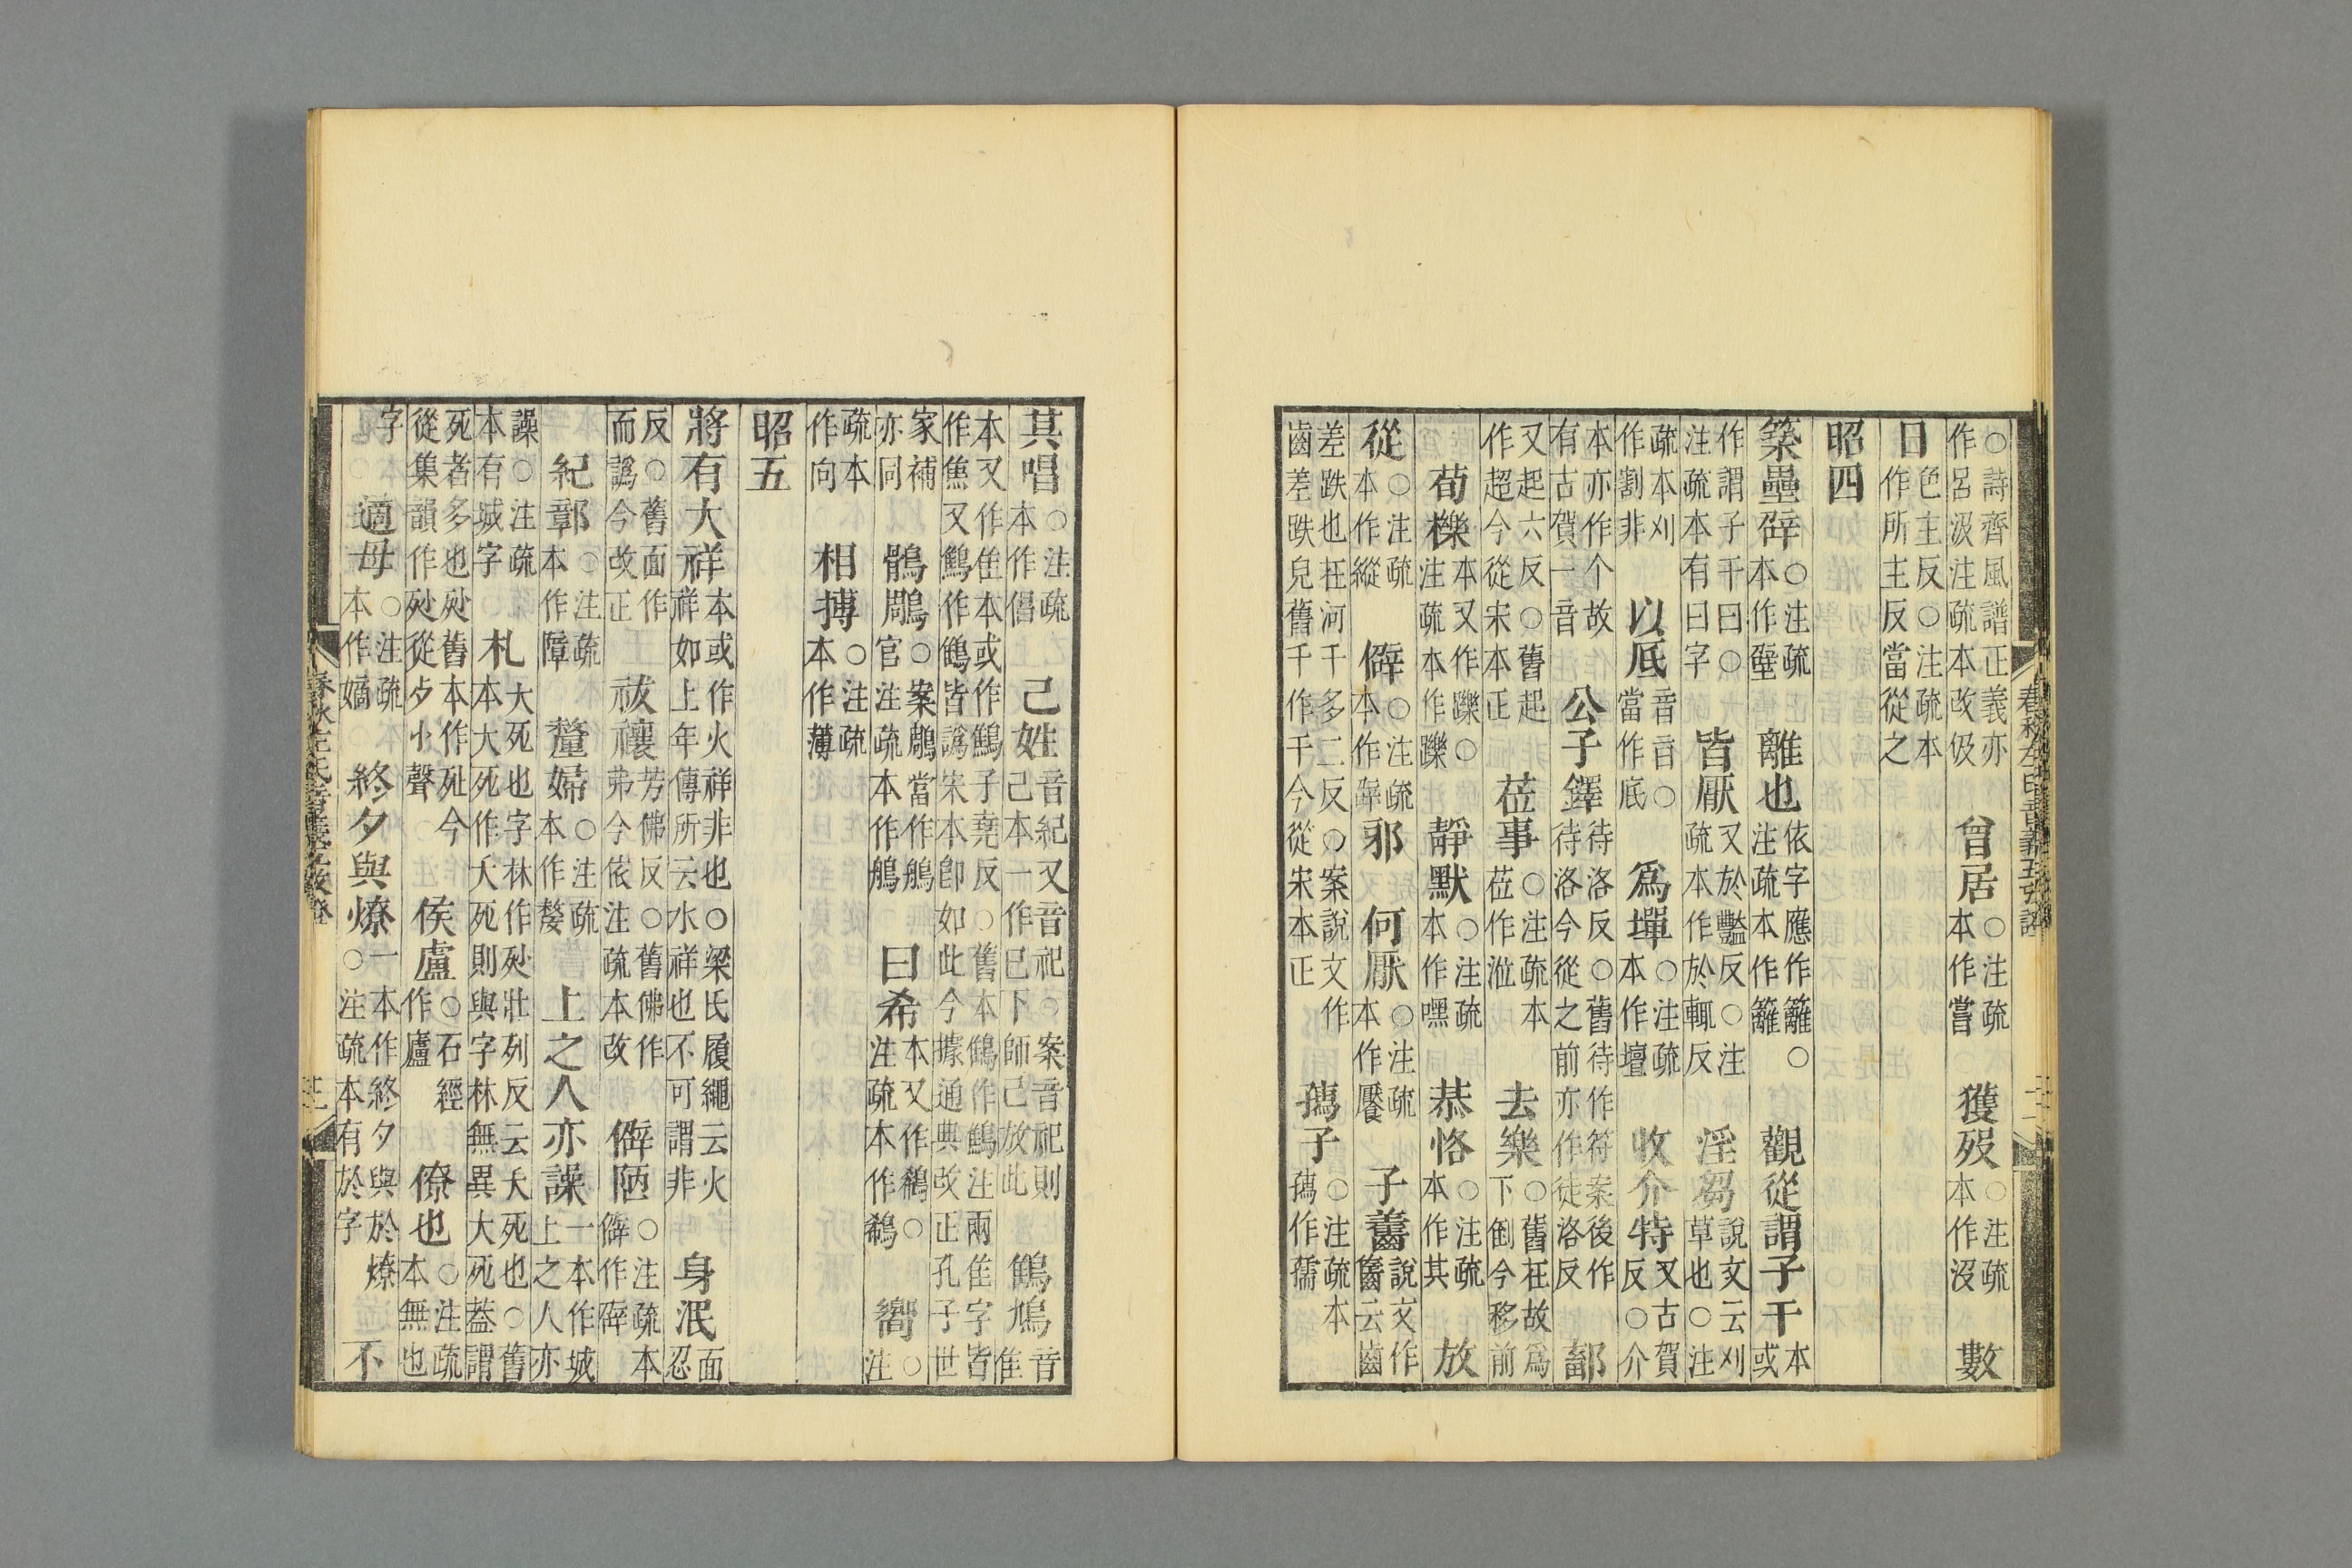 ○詩齊風譜正義亦作呂汲注疏本改伋 曾居○注疏本作嘗 獲歿○注疏本作沒 數
日色主反○注疏本作所主反當從之
昭四
築壘辟○注疏本作壁 離也依字應作籬○注疏本作籬 觀從謂子干本或
作謂子干曰○注疏本有曰字 皆厭又於豔反○注疏本作於輒反 淫芻說文云刈草也○注
疏本刈作割非 以底音旨○當作底 爲墠○注疏本作壇 收介特又古賀反○介
本亦作个故有古賀一音 公子鐸待洛反○舊待作待洛今從之前亦作符案後作徒洛反 鄐
又起六反○舊起作超今從宋本正 莅事○注疏本莅作涖 去樂○舊在故爲下倒今移前
荀櫟本又作躒○注疏本作躒 靜默○注疏本作嘿 恭恪○注疏本作其 放
從○注疏本作縱 僻○注疏本作辟 邪 何厭○注疏本作饜 子齹說文作齹云齒
差跌也在河千多二反○案說文作齒差跌皃舊千作干今從宋本正 蒍子○注疏本蒍作孺
春秋左氏音義五攷證
其唱○注疏本作倡 己姓音紀又音祀○案音祀則己本一作巳下師己放此 鶴鳩音隹
本又作隹本或作鶴子堯反○舊本鶴作鶴注兩隹字皆作焦又鷦作鶴皆譌宋本卽如此今據通典改正孔子世
家補亦同 鶻鵰○案鵰當作鵃官注疏本作鵃 曰希本又作鵗○注疏本作鵗 嚮○注
疏本作向 相搏○注疏本作薄
昭五
將有大祥本或作火祥非也○梁氏履繩云火祥如上年傳所云水祥也不可謂非 身泯面忍
反○舊面作而譌今改正 祓禳芳佛反○舊佛作弗今依注疏本改 僻陋○注疏本僻作辟
紀鄣○注疏本作障 釐婦○注疏本作嫠 上之人亦譟一本作城上之人亦
譟○注疏本有城字 札大死也字林作㱚壯列反云夭死也○舊本大死作夭死則與字林無異大死蓋謂
死者多也㱚舊本作㱔今從集韻作㱚從歺𡭔聲 侯廬○石經作廬 僚也○注疏本無也
字 適母○注疏本作嫡 終夕與燎一本作終夕與於燎○注疏本有於字 不